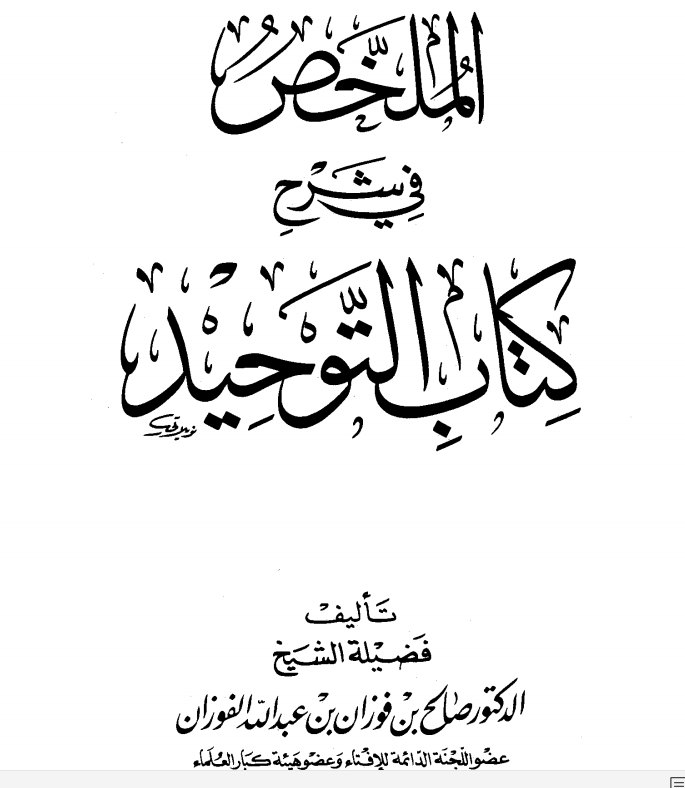 المُلَخَّصُ
فِي شَرْحِ
كِتَابِ التَّوْحِيْد
تَأليف
فَضيْلة الشيَخ
الدكتور صَالح بن فوزان بن عبد الله الفوزان
عضو اللّجنَة الدّائمة للإفتاء وَعضو هيئة كبَار العُلَماء